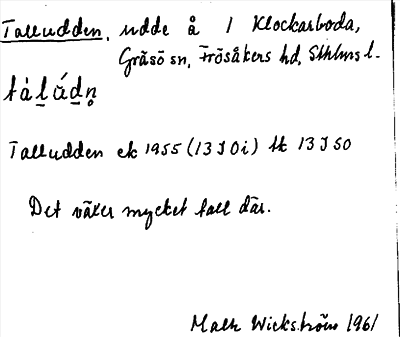 Talludden, udde å / Klockarboda,
Gräsö sn, Frösåkers hd, Sthlms l.
tàlúdn̥
Talludden ek 1955 (13 J 0i) tk 13 J SO
Det växer mycket tall där.
Wickström 1961